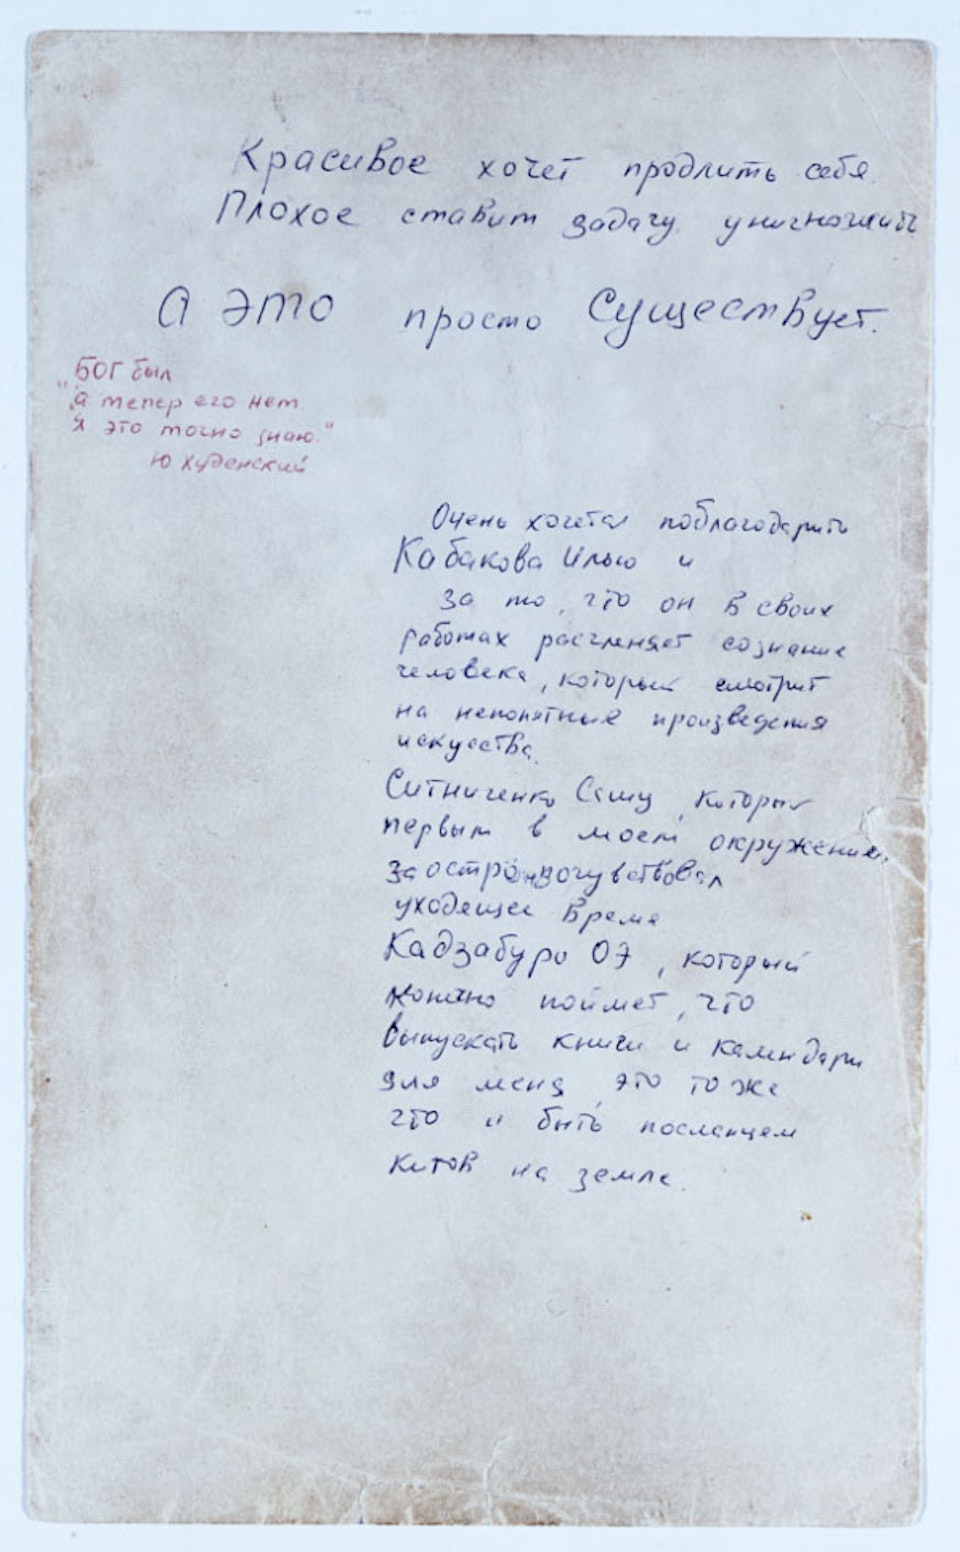 Красивое хочет продлить себя.
Плохое ставит задачу уничтожить
А это просто Существует.
"Бог был
а тепер его нет.
Я это точно знаю."
Ю Худенский
Очень хочется поблагодарить
Кабакова Илью и
за то, что он в своих
работах расчленяет сознание
человека, который смотрит
на непонятные произведения
искусства.
Ситниченко Сашу, который
первым в моем окружении
заостренно почувствовал
уходящее время
Кадзабуро ОЭ, который
конечно поймет, что
выпускать книги и календари
для меня, это тоже
что и быть посланцем
китов на земле.